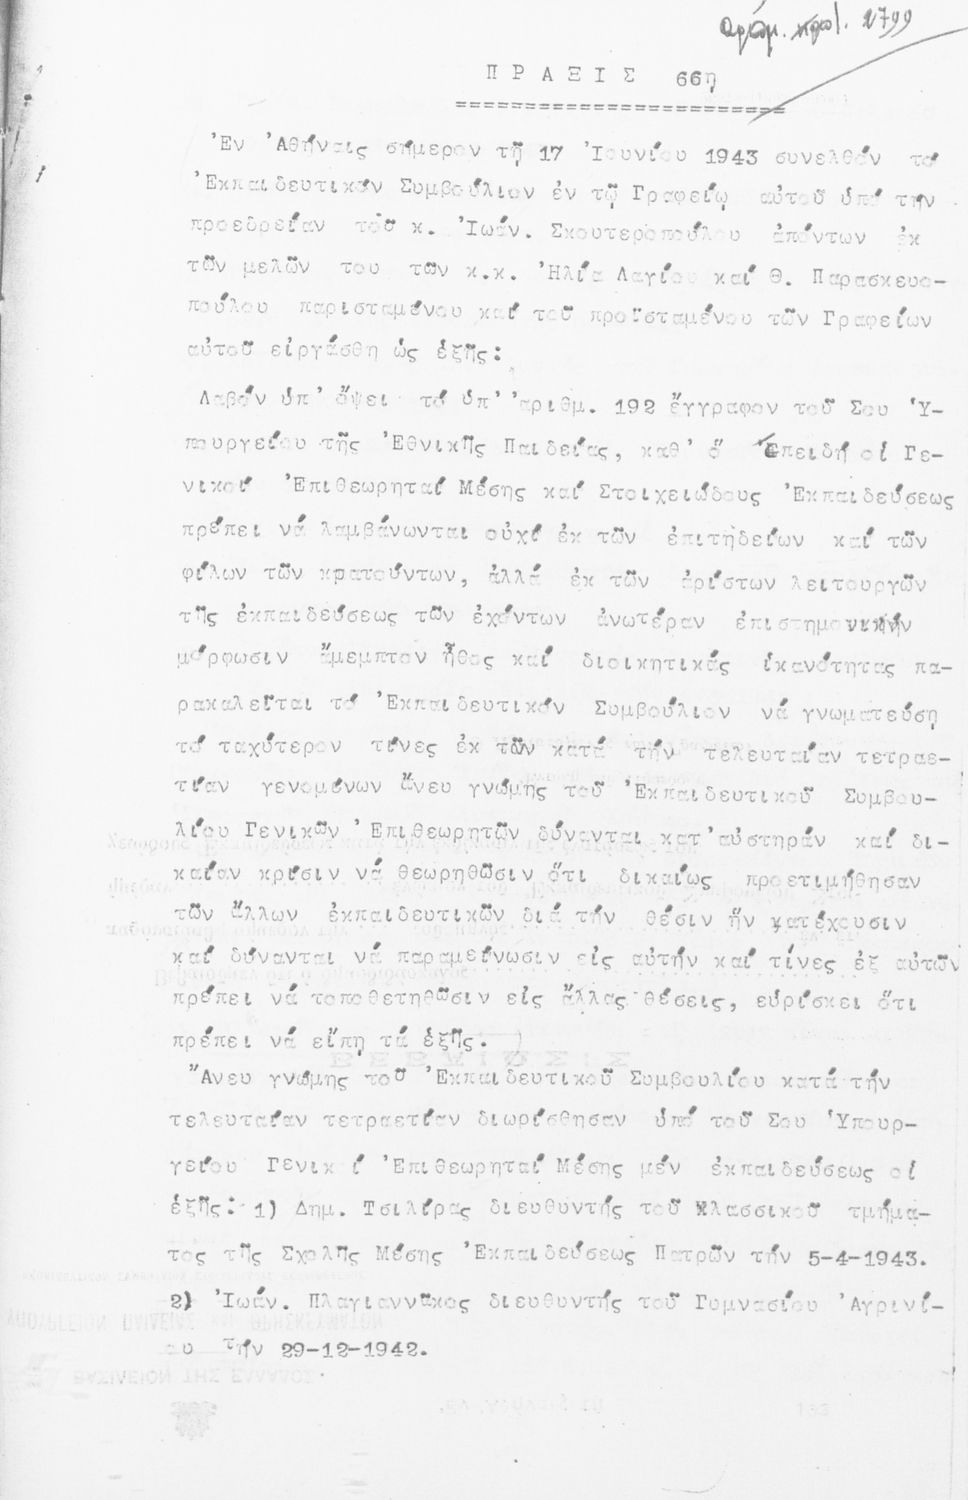 αριθμ. πρωτ. 2799
ΠΡΑΞΙΣ 66η
Ἐν Ἀθήναις σήμερον τῇ 17 Ἰουνίου 1943 συνελθόν τό
Ἐκπαιδευτικόν Συμβούλιον ἐν τῷ Γραφείῳ αὐτοῦ ὑπό τήν
προεδρείαν τοῦ κ. Ἰωάν. Σκουτεροπούλου ἁπάντων ἐκ
τῶν μελῶν του τῶν κ.κ. Ἠλία Λαγίου καί Θ. Παρασκευο-
πούλου παρισταμένου καί τοῦ προϊσταμένου τῶν Γραφείων
αὐτοῦ εἰργάσθη ὡς ἑξῆς:
Λαβόν ὑπ' ὄψει τό ὑπ' ἀριθμ. 192 ἔγγραφον τοῦ Σου Ὑ-
πουργείου τῆς Ἐθνικῆς Παιδείας, καθ' ὅ Ἐπειδή οἱ Γε-
νικοί Ἐπιθεωρηταί Μέσης καί Στοιχειώδους Ἐκπαιδεύσεως
πρέπει νά λαμβάνωνται οὐχί ἐκ τῶν ἐπιτηδείων καί τῶν
φίλων τῶν κρατούντων, ἀλλά ἐκ τῶν ἀρίστων λειτουργῶν
τῆς ἐκπαιδεύσεως τῶν ἐχόντων ἀνωτέραν ἐπιστημονικήν
μόρφωσιν ἄμεμπτον ἦθος καί διοικητικάς ἱκανότητας πα-
ρακαλεῖται τό Ἐκπαιδευτικόν Συμβούλιον νά γνωματεύσῃ
τό ταχύτερον τίνες ἐκ τῶν κατά τήν τελευταίαν τετραε-
τίαν γενομένων ἄνευ γνώμης τοῦ Ἐκπαιδευτικοῦ Συμβου-
λίου Γενικῶν Ἐπιθεωρητῶν δύνανται κατ' αὐστηράν καί δι-
καίαν κρίσιν νά θεωρηθῶσιν ὅτι δικαίως προετιμήθησαν
τῶν ἄλλων ἐκπαιδευτικῶν διά τήν θέσιν ἥν κατέχουσιν
καί δύνανται νά παραμείνωσιν εἰς αὐτήν καί τίνες ἐξ αὐτῶν
πρέπει νά τοποθετηθῶσιν εἰς ἄλλας θέσεις, εὑρίσκει ὅτι
πρέπει νά εἴπῃ τά ἑξῆς.
Ἄνευ γνώμης τοῦ Ἐκπαιδευτικοῦ Συμβουλίου κατά τήν
τελευταίαν τετραετίαν διωρίσθησαν ὑπό τοῦ Σου Ὑπουρ-
γείου Γενικ ί Ἐπιθεωρηταί Μέσης μέν ἐκπαιδεύσεως οἱ
ἑξῆς: 1) Δημ. Τσιλίρας διευθυντής τοῦ Κλασσικοῦ τμήμα-
τος τῆς Σχολῆς Μέσης Ἐκπαιδεύσεως Πατρῶν τήν 5-4-1943.
2) Ἰωάν. Πλαγιαννᾶκος διευθυντής τοῦ Γυμνασίου Ἀγρινί-
ου τήν 29-12-1942.